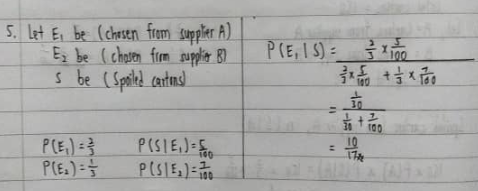 5. Let E₁ be (chosen from supplier A)
E₂ be (chosen from supplier B)
S be (Spoiled cartons)
P(E₁) = 2/3 P(S|E₁) = 5/100
P(E₂) = 1/3 P(S|E₂) = 7/100
P(E₁|S) = (2/3 × 5/100) / (2/3 × 5/100 + 1/3 × 7/100)
= (1/30) / (1/30 + 7/100)
= 10/17